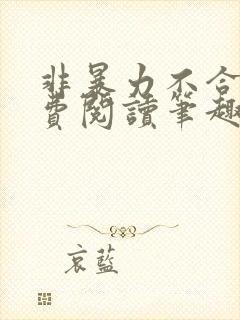 非暴力不合
費閱讀筆趣
哀藍